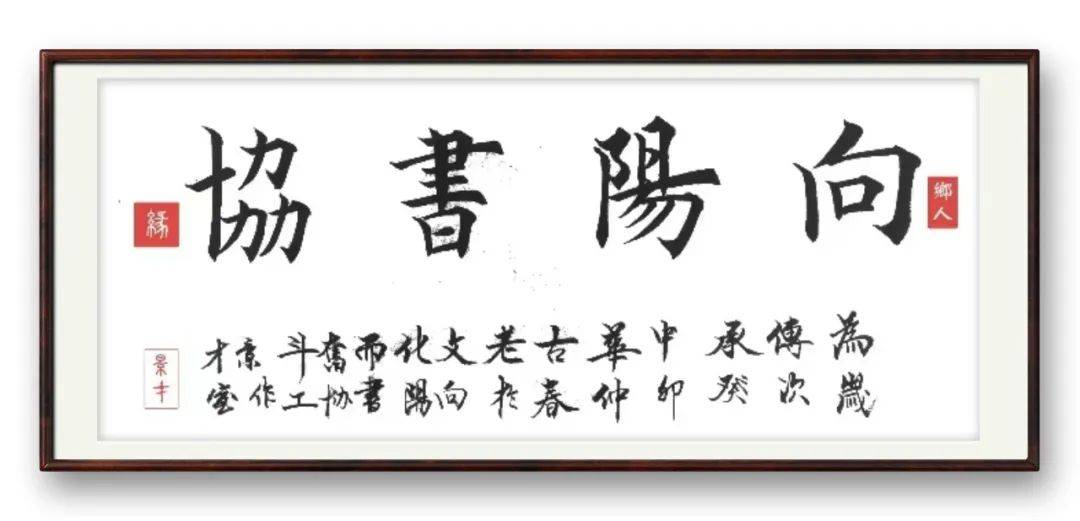 向陽書協
鄉人
緣
為傳承中華古老文化而奮斗京才
歲次癸卯仲春於向陽書協工作室
景才